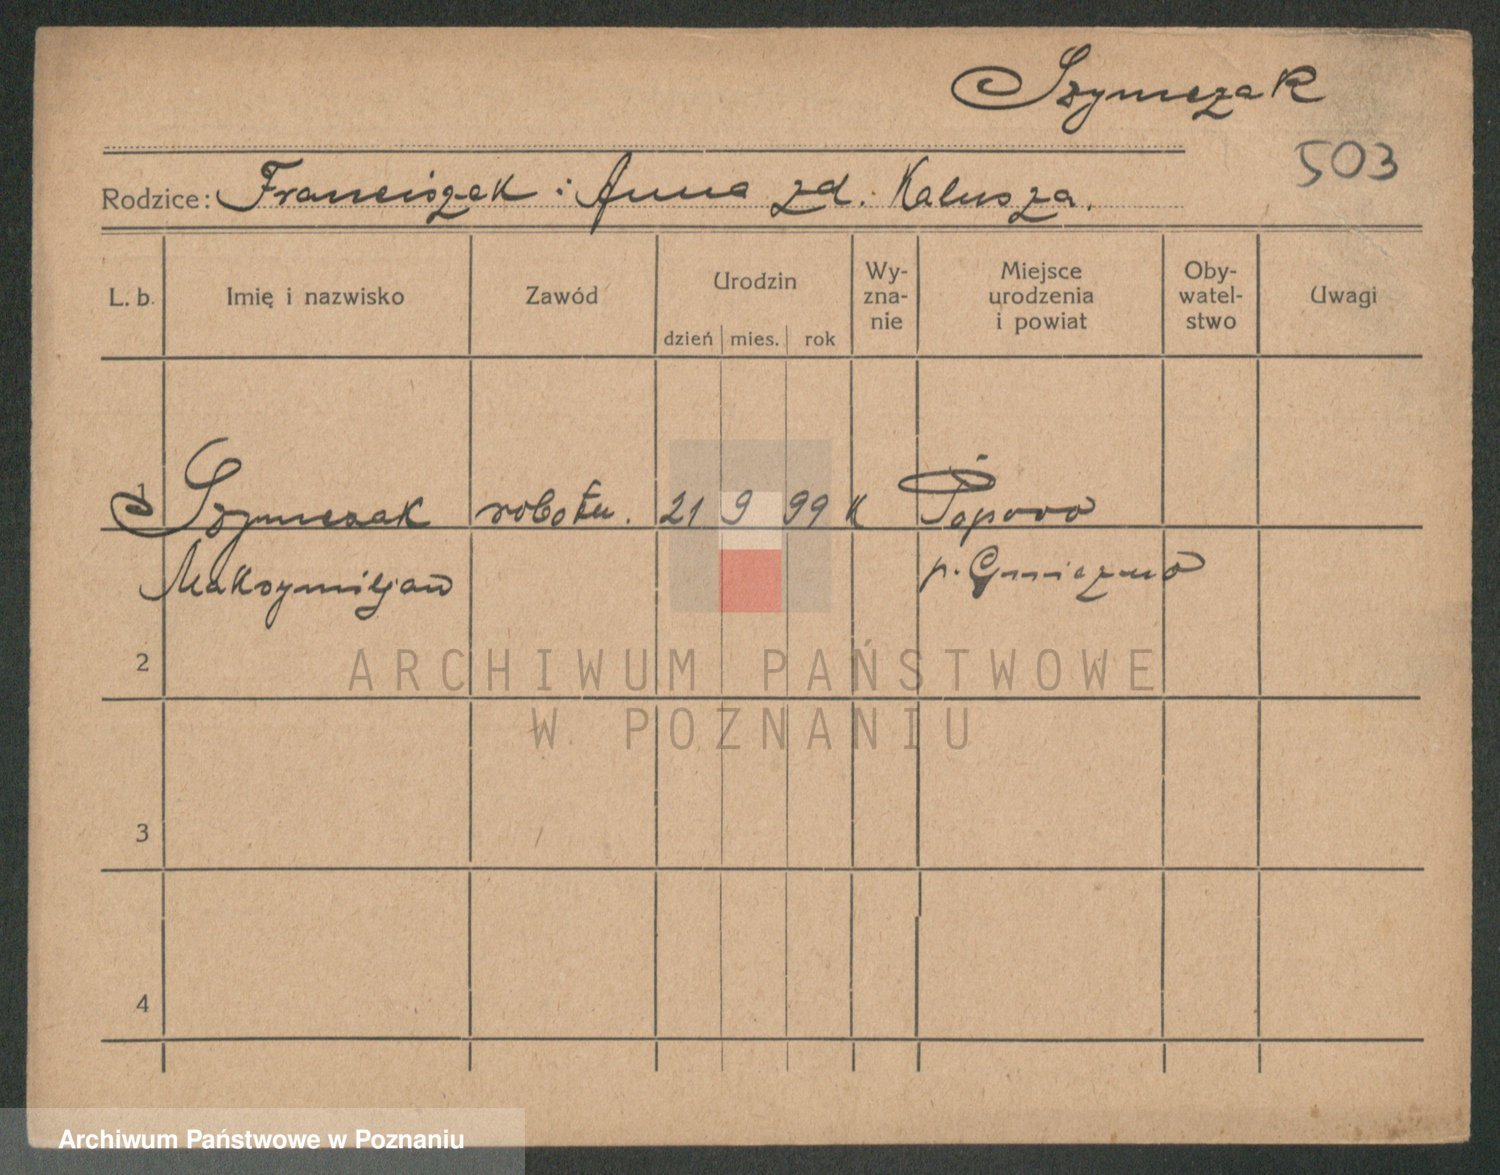 Szymczak
503
Rodzice: Franciszek i Anna zd. Kalusza.
L. b. Imię i nazwisko Zawód Urodzin Wy-zna-nie Miejsce urodzenia i powiat Oby-watel-stwo Uwagi
dzień mies. rok
1 Szymczak robotn. 21 9 99 K Popowo
Maksymiljan p. Gniezno
2
ARCHIWUM PAŃSTWOWE
W POZNANIU
3
4
Archiwum Państwowe w Poznaniu